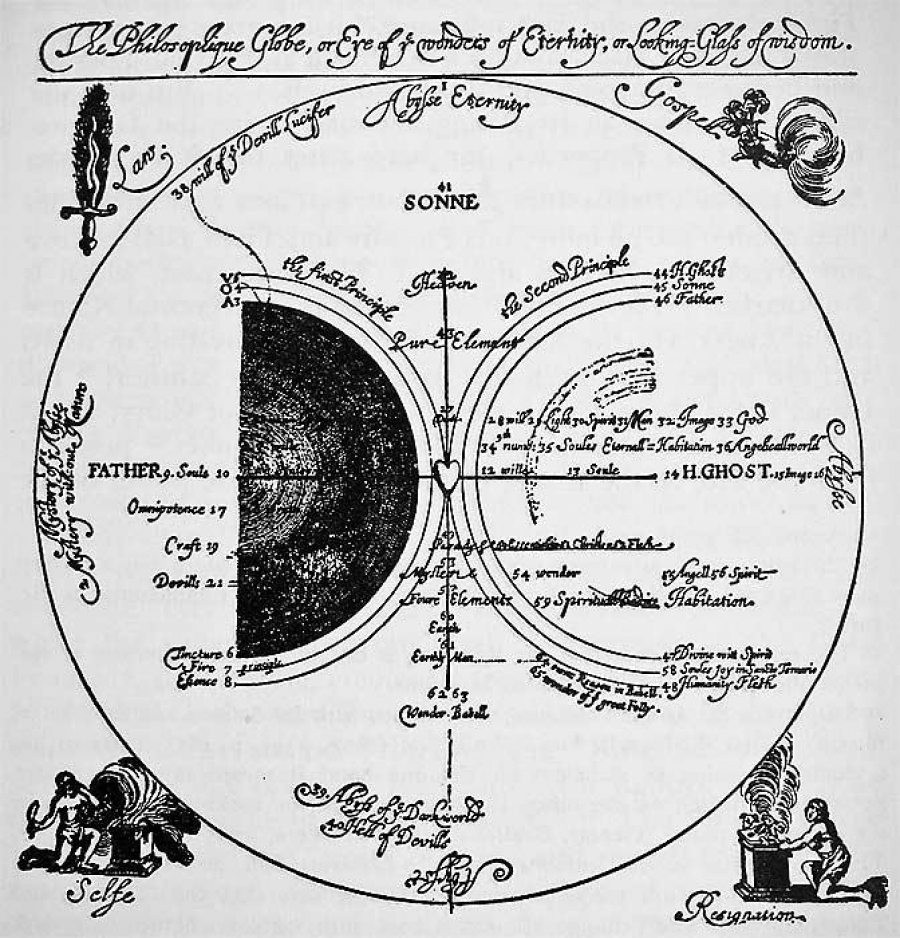 The Philosophique Globe, or Eye of yͤ wonders of Eternity, or Looking-Glass of wisdom.
Law;
38 will of yͤ Devill Lucifer
Abysse 1 Eternity
Gospell
41
SONNE
the first Principle
Heaven
the Second Principle
44 H. Ghost
45 Sonne
46 Father
43
Pure Element
28 will 29 Light 30 Spirit 31 Man 32 Image 33 God
35 Soules Eternall = Habitation 36 Angelicall world
FATHER 9. Soule 10
12 will 13 Soule
14 H. GHOST. 15 Image 16
Abysse
Omnipotence 17
Craft 19
Devills 21
Mysterie
54 wonder
55 Angell 56 Spirit
Foure Elements
59 Spirituall
Habitation
60
Earth
61
Earthly Man
Tincture 6
Fire 7 principle
Essence 8.
65 owne Reason in Babell
66 wonder of yͤ great Folly.
47 Divine wit Spirit
58 Soules Joy in Ternario
48 Humanity Flesh
62 63
Wonder Babell
39. Abyss of yͤ Darkworld
40 Hell of Devills
Abysse
Selfe
Resignation